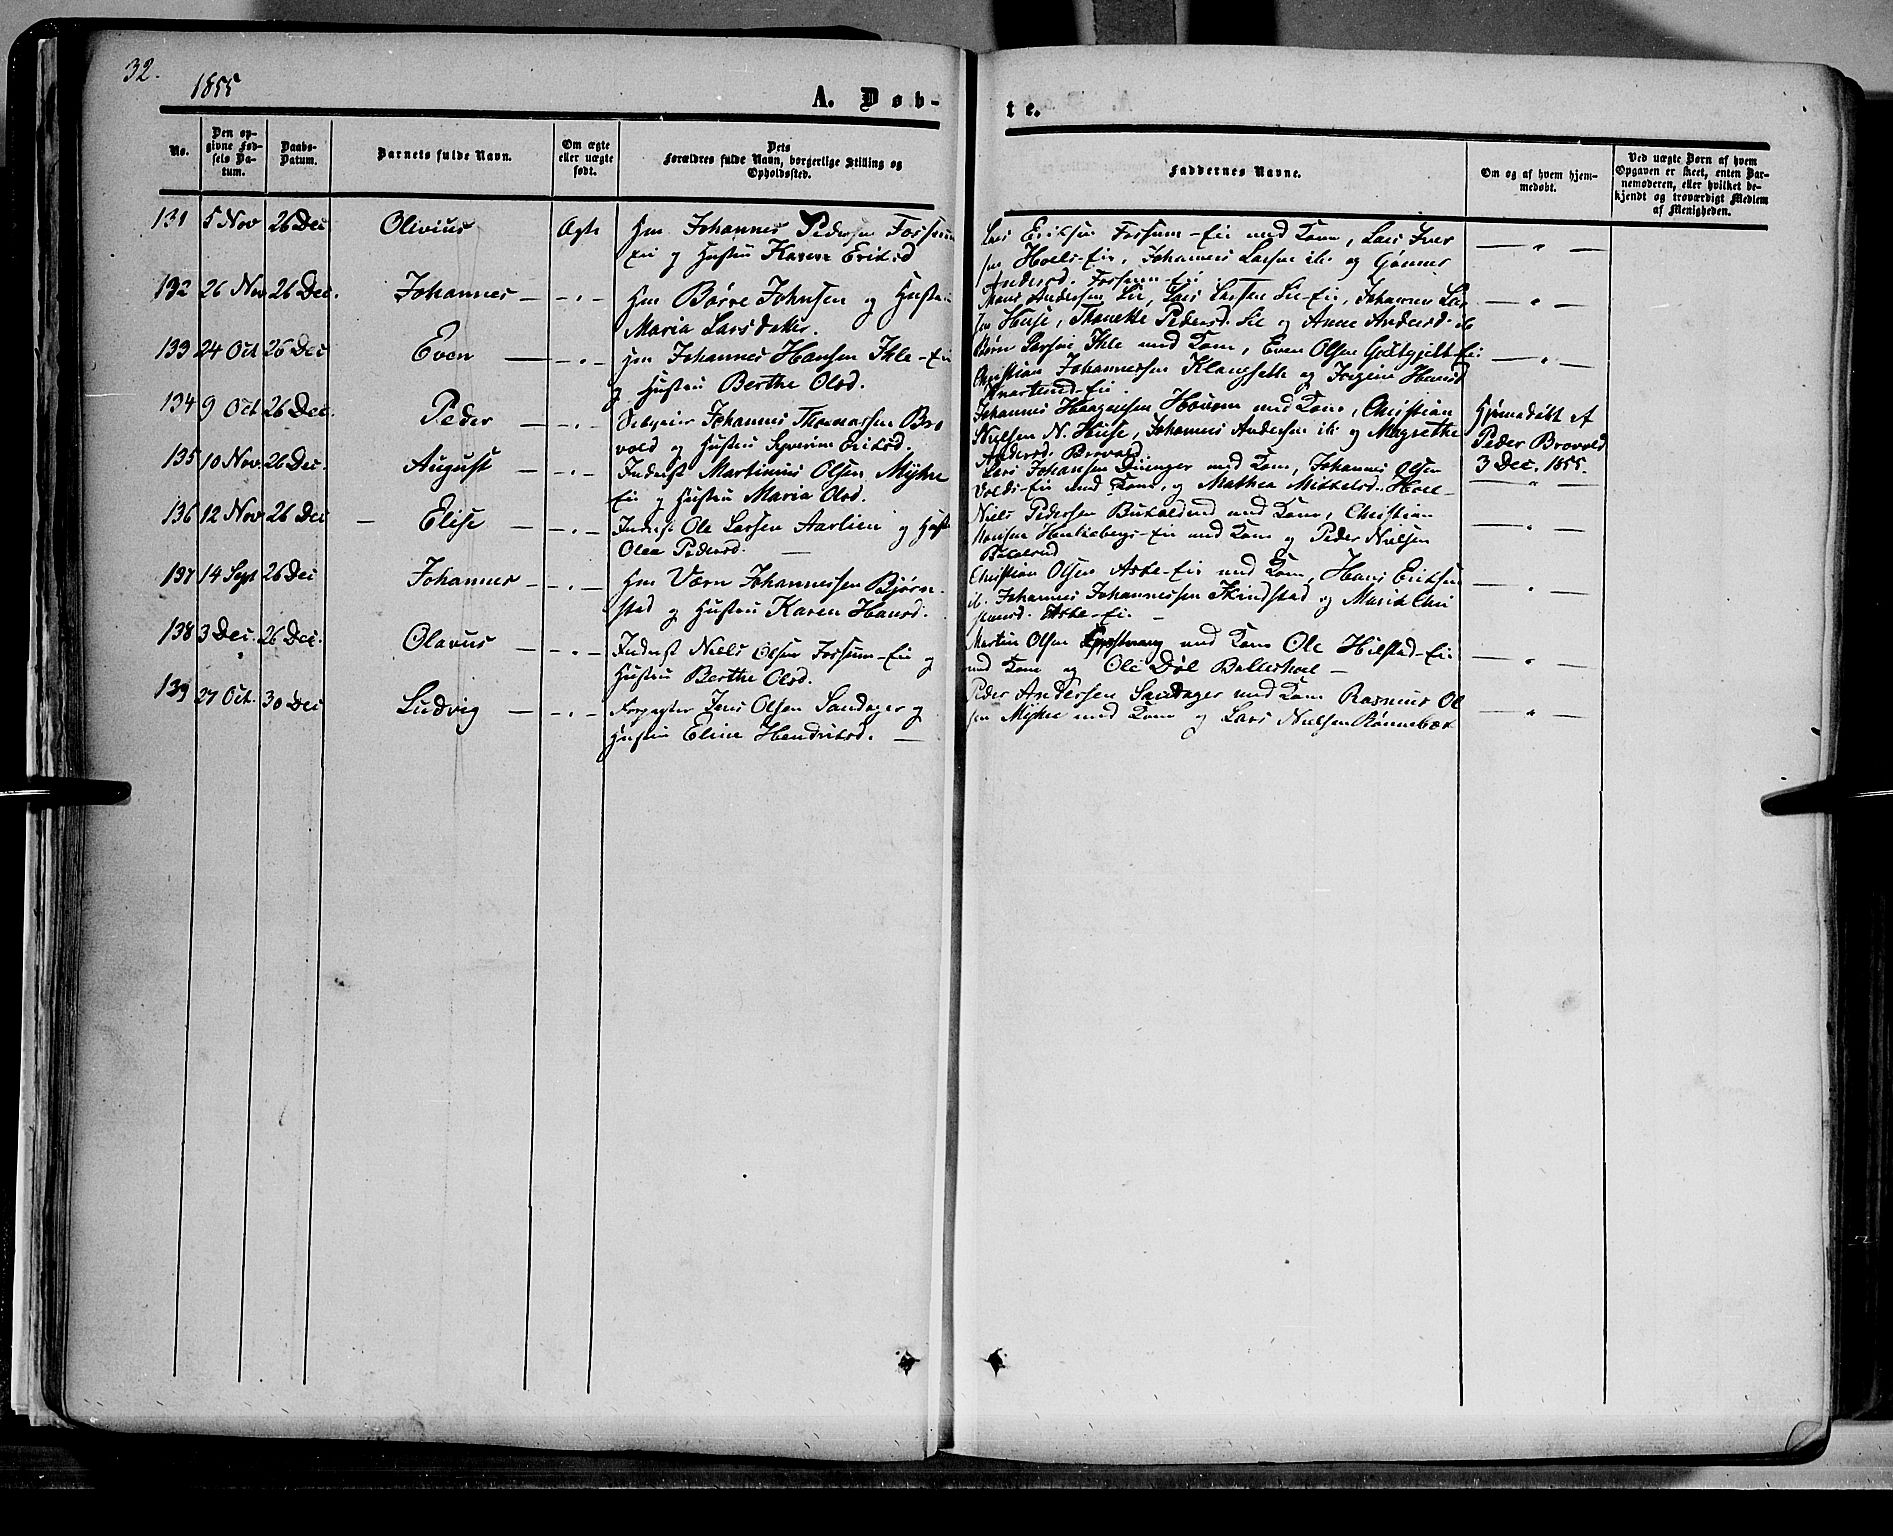 32.
1855
A. Døb-
te.
No.
Den op-
givne Fød-
sels Da-
tum.
Daabs-
Datum.
Barnets fulde Navn.
Om ægte
eller uægte
født.
Dets
Forældres fulde Navn, borgerlige Stilling og
Opholdssted.
Faddernes Navne.
Om og af hvem hjem-
medøbt.
Ved uægte Børn af hvem
Opgaven er skeet, enten Bar-
nemoderen, eller hvilket be-
kjendt og troværdigt Medlem
af Menigheden.
131 5 Nov 26 Dec Olivius Ægte Hm Johannes Pedersen Fossum
Eie og Hustru Karen Eriksd
Lars Eriksen Fossum-Eie med Kone, Lars Iver
sen Hoels-Eie, Johannes Larsen ib. og
Andersd. Fossum-Eie
132 26 Nov 26 Dec. Johannes — - " - Hm Børre Johnsen og Hustru
Maria Larsdatter.
Hans Andersen Lie, Lars Larsen Lie-Eie, Johannes Lar
sen Huse, Thonette Pedersd. Lie og Anne Andersd. ib
133 24 Oct 26 Dec Even — - " - Hm Johannes Hansen Ihle-Eie
og Hustru Berthe Olsd.
Børre Larsen Ihle med Kone, Even Olsen
Christian Johannessen Klangseth og Hansd
134 9 Oct 26 Dec. Peder — - " - Selveier Johannes Thomassen Bro
vold og Hustru Syverine Eriksd.
Johannes Haagensen med Kone, Christian
Nielsen N. Huse, Johannes Andersen ib. og Magrethe
Andersd. Brovold
Hjemmedøbt af
Peder Brovold
3 Dec. 1855.
135 10 Nov 26 Dec. August — - " - Inderst Martinus Olsen Myhre
Eie og Hustru Maria Olsd.
Lars Johansen med Kone, Johannes Olsen
Volds-Eie med Kone, og Mathea Mikkelsd. Hoel —
136 12 Nov 26 Dec — Elise — - " - Inderst Ole Larsen Aarlien og Hustr
Olea Pedersd. —
Niels Pedersen med Kone, Christian
Hansen med Kone og Peder Nielsen
137 14 Sept 26 Dec Johannes — - " - Hm Johannessen Bjørn-
stad og Hustru Karen Hansd.
Christian Olsen Aske-Eie med Kone, Hans Eriksen
ib. Johannes Johannessen Skindstad og Marie Chri
Aske-Eie —
138 3 Dec. 26 Dec. Olavus — - " - Inderst Niels Olsen Fossum-Eie og
Hustru Berthe Olsd.
Martin Olsen med Kone Ole Hilstad-Eie
med Kone og Ole Døl Balleshoel —
139 27 Oct. 30 Dec Ludvig — - " - Forpagter Jens Olsen Sandager og
Hustru Eline Hendriksd. —
Peder Andersen Sandager med Kone Rasmus Ol
sen Myhre med Kone og Lars Nielsen Rønnebæk